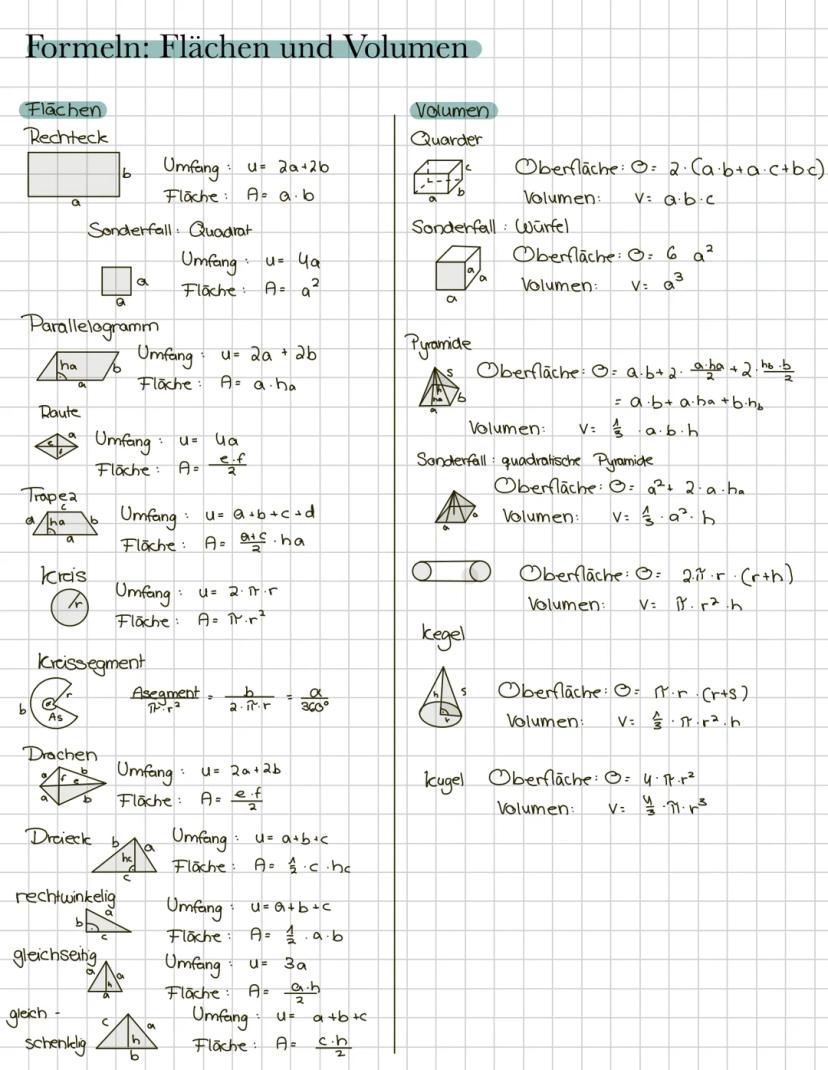 Formeln: Flächen und Volumen
Flächen
Rechteck
b
a
Umfang : u= 2a+2b
Fläche : A= a·b
Sonderfall: Quadrat
a
a
Umfang : u= 4a
Fläche : A= a²
Parallelogramm
ha
b
a
Umfang : u= 2a + 2b
Fläche : A= a·ha
Raute
a
e
f
Umfang : u= 4a
Fläche : A= e·f/2
Trapez
c
d
ha
b
a
Umfang : u= a+b+c+d
Fläche : A= a+c/2 ·ha
Kreis
r
Umfang : u= 2·π·r
Fläche : A= π·r²
Kreissegment
r
b
α
As
Asegment/π·r² = b/2·π·r = α/360°
Drachen
a
b
f
e
a
b
Umfang : u= 2a+2b
Fläche : A= e·f/2
Dreieck
b
a
hc
c
Umfang : u= a+b+c
Fläche : A= 1/2·c·hc
rechtwinkelig
a
b
c
Umfang : u=a+b+c
Fläche : A= 1/2·a·b
gleichseitig
a
a
h
a
Umfang : u= 3a
Fläche : A= a·h/2
gleich-
schenklig
c
a
h
b
Umfang : u= a+b+c
Fläche : A= c·h/2
Volumen
Quarder
c
b
a
Oberfläche: O= 2·(a·b+a·c+bc)
Volumen: V= a·b·c
Sonderfall: Würfel
a
a
a
Oberfläche: O= 6 a²
Volumen: V= a³
Pyramide
s
h
ha
b
a
Oberfläche: O= a·b+2· a·ha/2 +2· hb·b/2
= a·b+a·ha+b·hb
Volumen: V= 1/3 ·a·b·h
Sonderfall: quadratische Pyramide
a
a
Oberfläche: O= a²+ 2·a·ha
Volumen: V= 1/3·a²·h
Oberfläche: O= 2·π·r·(r+h)
Volumen: V= π·r²·h
Kegel
h
s
r
Oberfläche: O= π·r·(r+s)
Volumen: V= 1/3·π·r²·h
Kugel
Oberfläche: O= 4·π·r²
Volumen: V= 4/3·π·r³